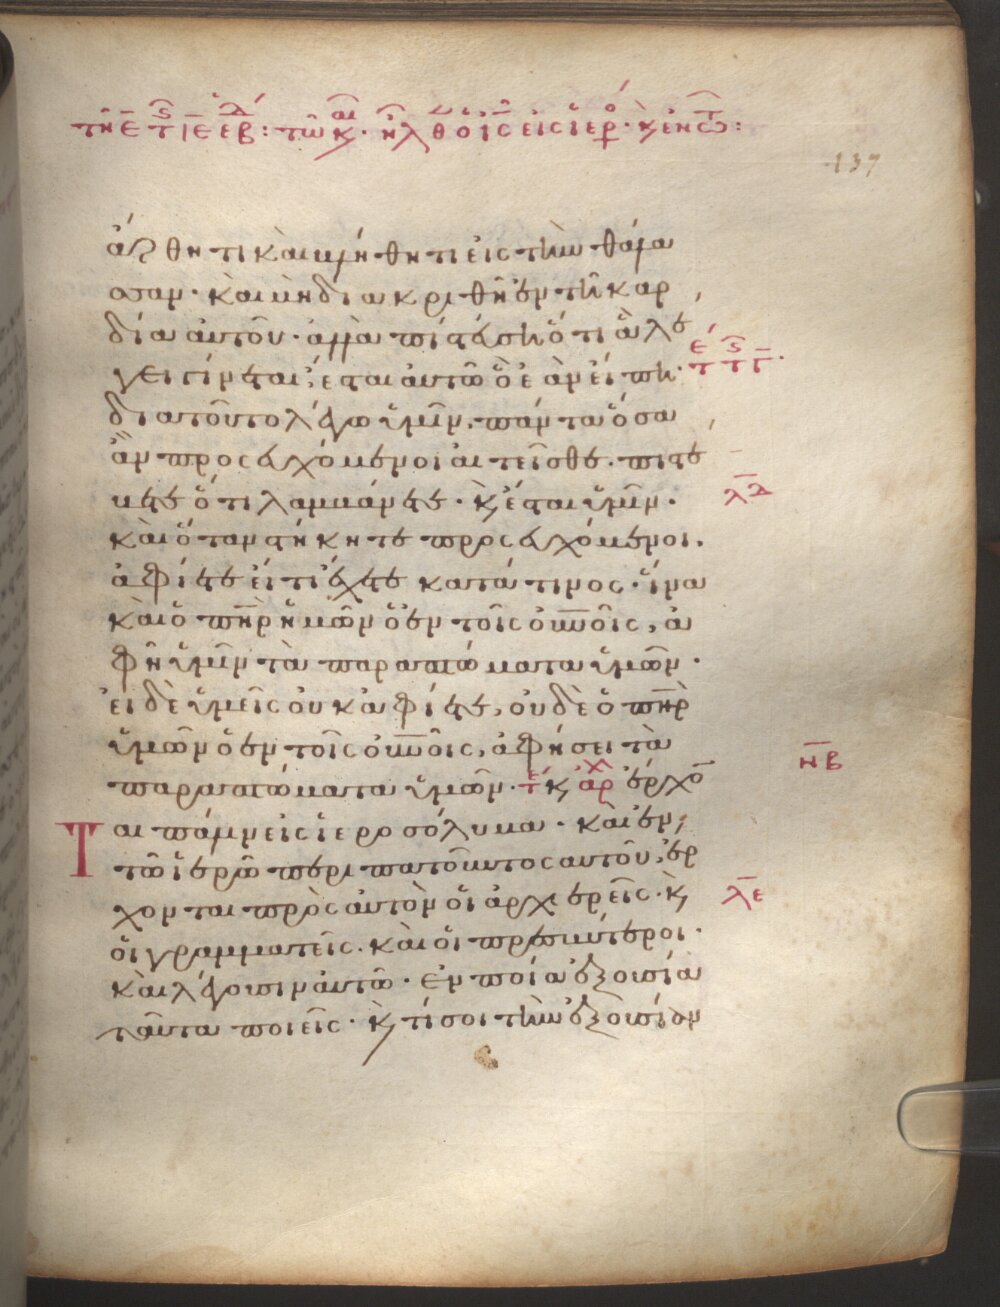 τῆ ε τ ιε εβδ: τῶ κ αι. ἦλθ ὁ ις εἰς ἱερ. κ ἐν
137
ἄρθητι καὶ βλήθητι εἰς τὴν θάλα
σσαν. καὶ μὴ διακριθῆ ἐν τῆ καρ
δία αὐτοῦ. ἀλλὰ πιστεύση ὅτι ἃ λέ
γει γίνεται, ἔσται αὐτῶ ὃ ἐὰν εἴπη.
διατοῦτο λέγω ὑμῖν. πάντα ὅσα
ἂν προσευχόμενοι αἰτεῖσθε. πιστε
υετε ὅτι λαμβάνετε. κ ἔσται ὑμῖν.
λδ
καὶ ὅταν στήκητε προσευχόμενοι.
ἀφίετε εἴ τι ἔχετε κατά τινος. ἵνα
καὶ ὁ πηρ ἡμῶν ὁ ἐν τοῖς οὐνοῖς, ἀ
φῆ ὑμῖν τὰ παραπτώματα ὑμῶν.
εἰ δὲ ὑμεῖς οὐκ ἀφίετε, οὐδὲ ὁ πηρ
ὑμῶν ὁ ἐν τοῖς οὐνοῖς, ἀφήσει τὰ
παραπτώματα ὑμῶν. τε κ αρχ ἐρχο
νβ
Ται πάλιν εἰς ἱεροσόλυμα. καὶ ἐν
τῶ ἱερῶ περιπατοῦντος αὐτοῦ, ἔρ
χονται πρὸς αὐτὸν οἱ ἀρχιερεῖς. κ
λε
οἱ γραμματεῖς. καὶ οἱ πρεσβύτεροι.
καὶ λέγουσιν αὐτῶ. ἐν ποία ἐξουσία
ταῦτα ποιεῖς. κ τίς σοι τὴν ἐξουσίαν